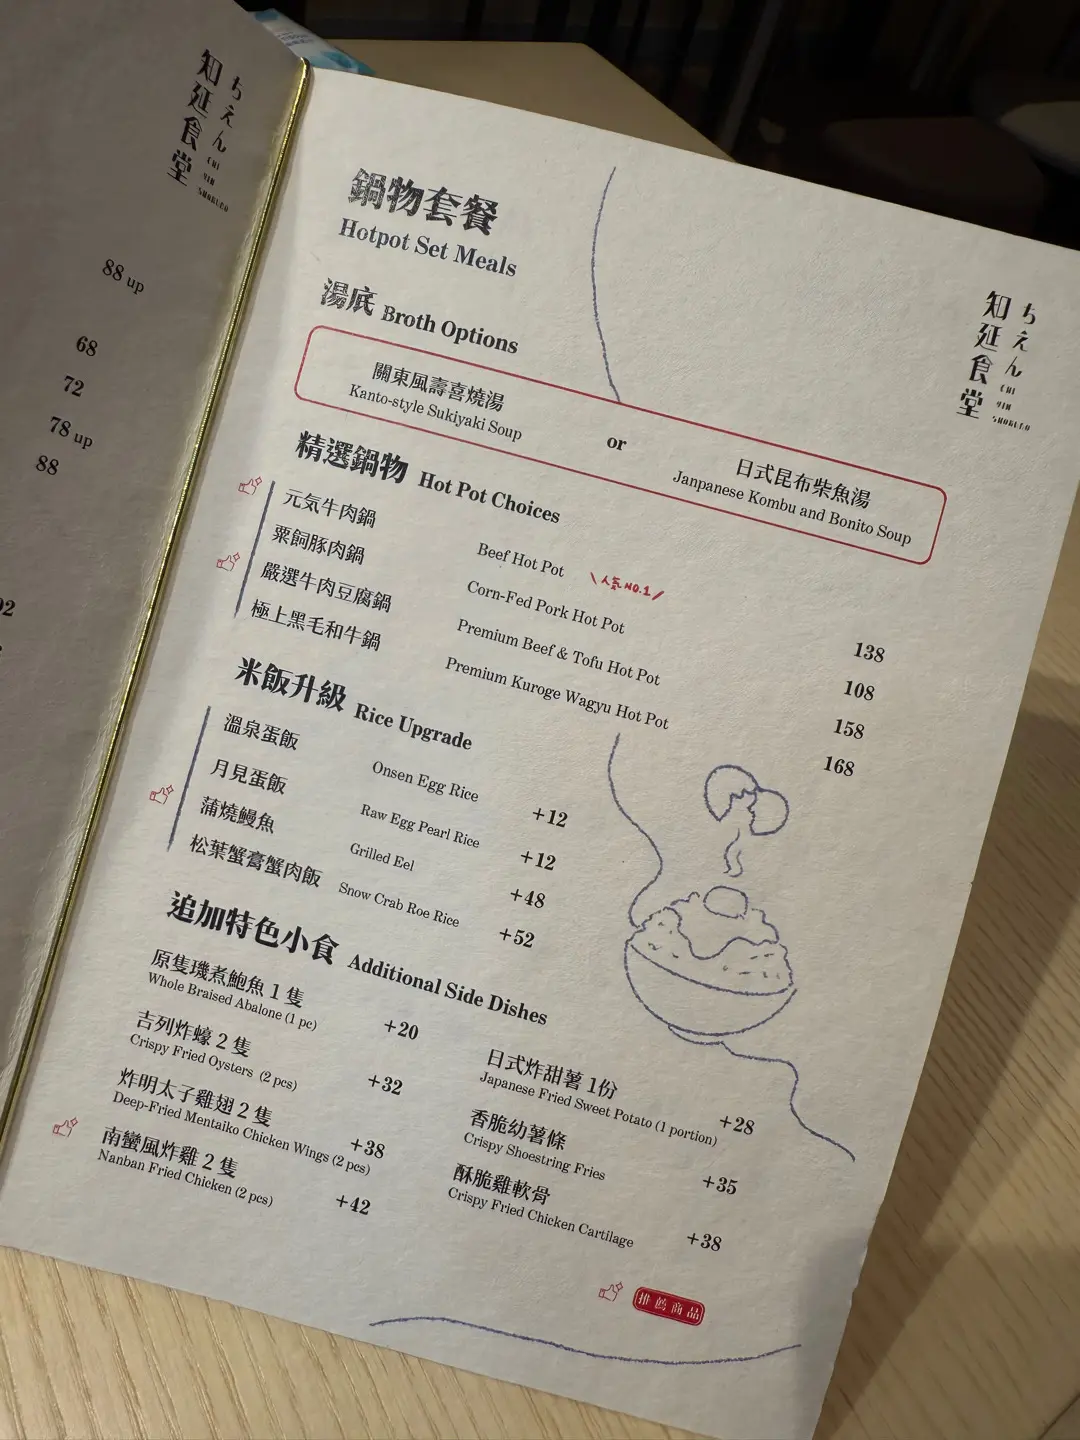 知延食堂
ちえん
CHI
YIN
SHOKUDO
88 up
68
72
78 up
88
鍋物套餐
Hotpot Set Meals
知延食堂
ちえん
CHI
YIN
SHOKUDO
湯底 Broth Options
關東風壽喜燒湯
Kanto-style Sukiyaki Soup
or
日式昆布柴魚湯
Janpanese Kombu and Bonito Soup
精選鍋物 Hot Pot Choices
元気牛肉鍋 Beef Hot Pot 人気 NO.1 138
粟飼豚肉鍋 Corn-Fed Pork Hot Pot 108
嚴選牛肉豆腐鍋 Premium Beef & Tofu Hot Pot 158
極上黑毛和牛鍋 Premium Kuroge Wagyu Hot Pot 168
米飯升級 Rice Upgrade
溫泉蛋飯 Onsen Egg Rice +12
月見蛋飯 Raw Egg Pearl Rice +12
蒲燒鰻魚 Grilled Eel +48
松葉蟹膏蟹肉飯 Snow Crab Roe Rice +52
追加特色小食 Additional Side Dishes
原隻璣煮鮑魚 1 隻
Whole Braised Abalone (1 pc) +20
吉列炸蠔 2 隻
Crispy Fried Oysters (2 pcs) +32
炸明太子雞翅 2 隻
Deep-Fried Mentaiko Chicken Wings (2 pcs) +38
南蠻風炸雞 2 隻
Nanban Fried Chicken (2 pcs) +42
日式炸甜薯 1份
Japanese Fried Sweet Potato (1 portion) +28
香脆幼薯條
Crispy Shoestring Fries +35
酥脆雞軟骨
Crispy Fried Chicken Cartilage +38
推薦商品